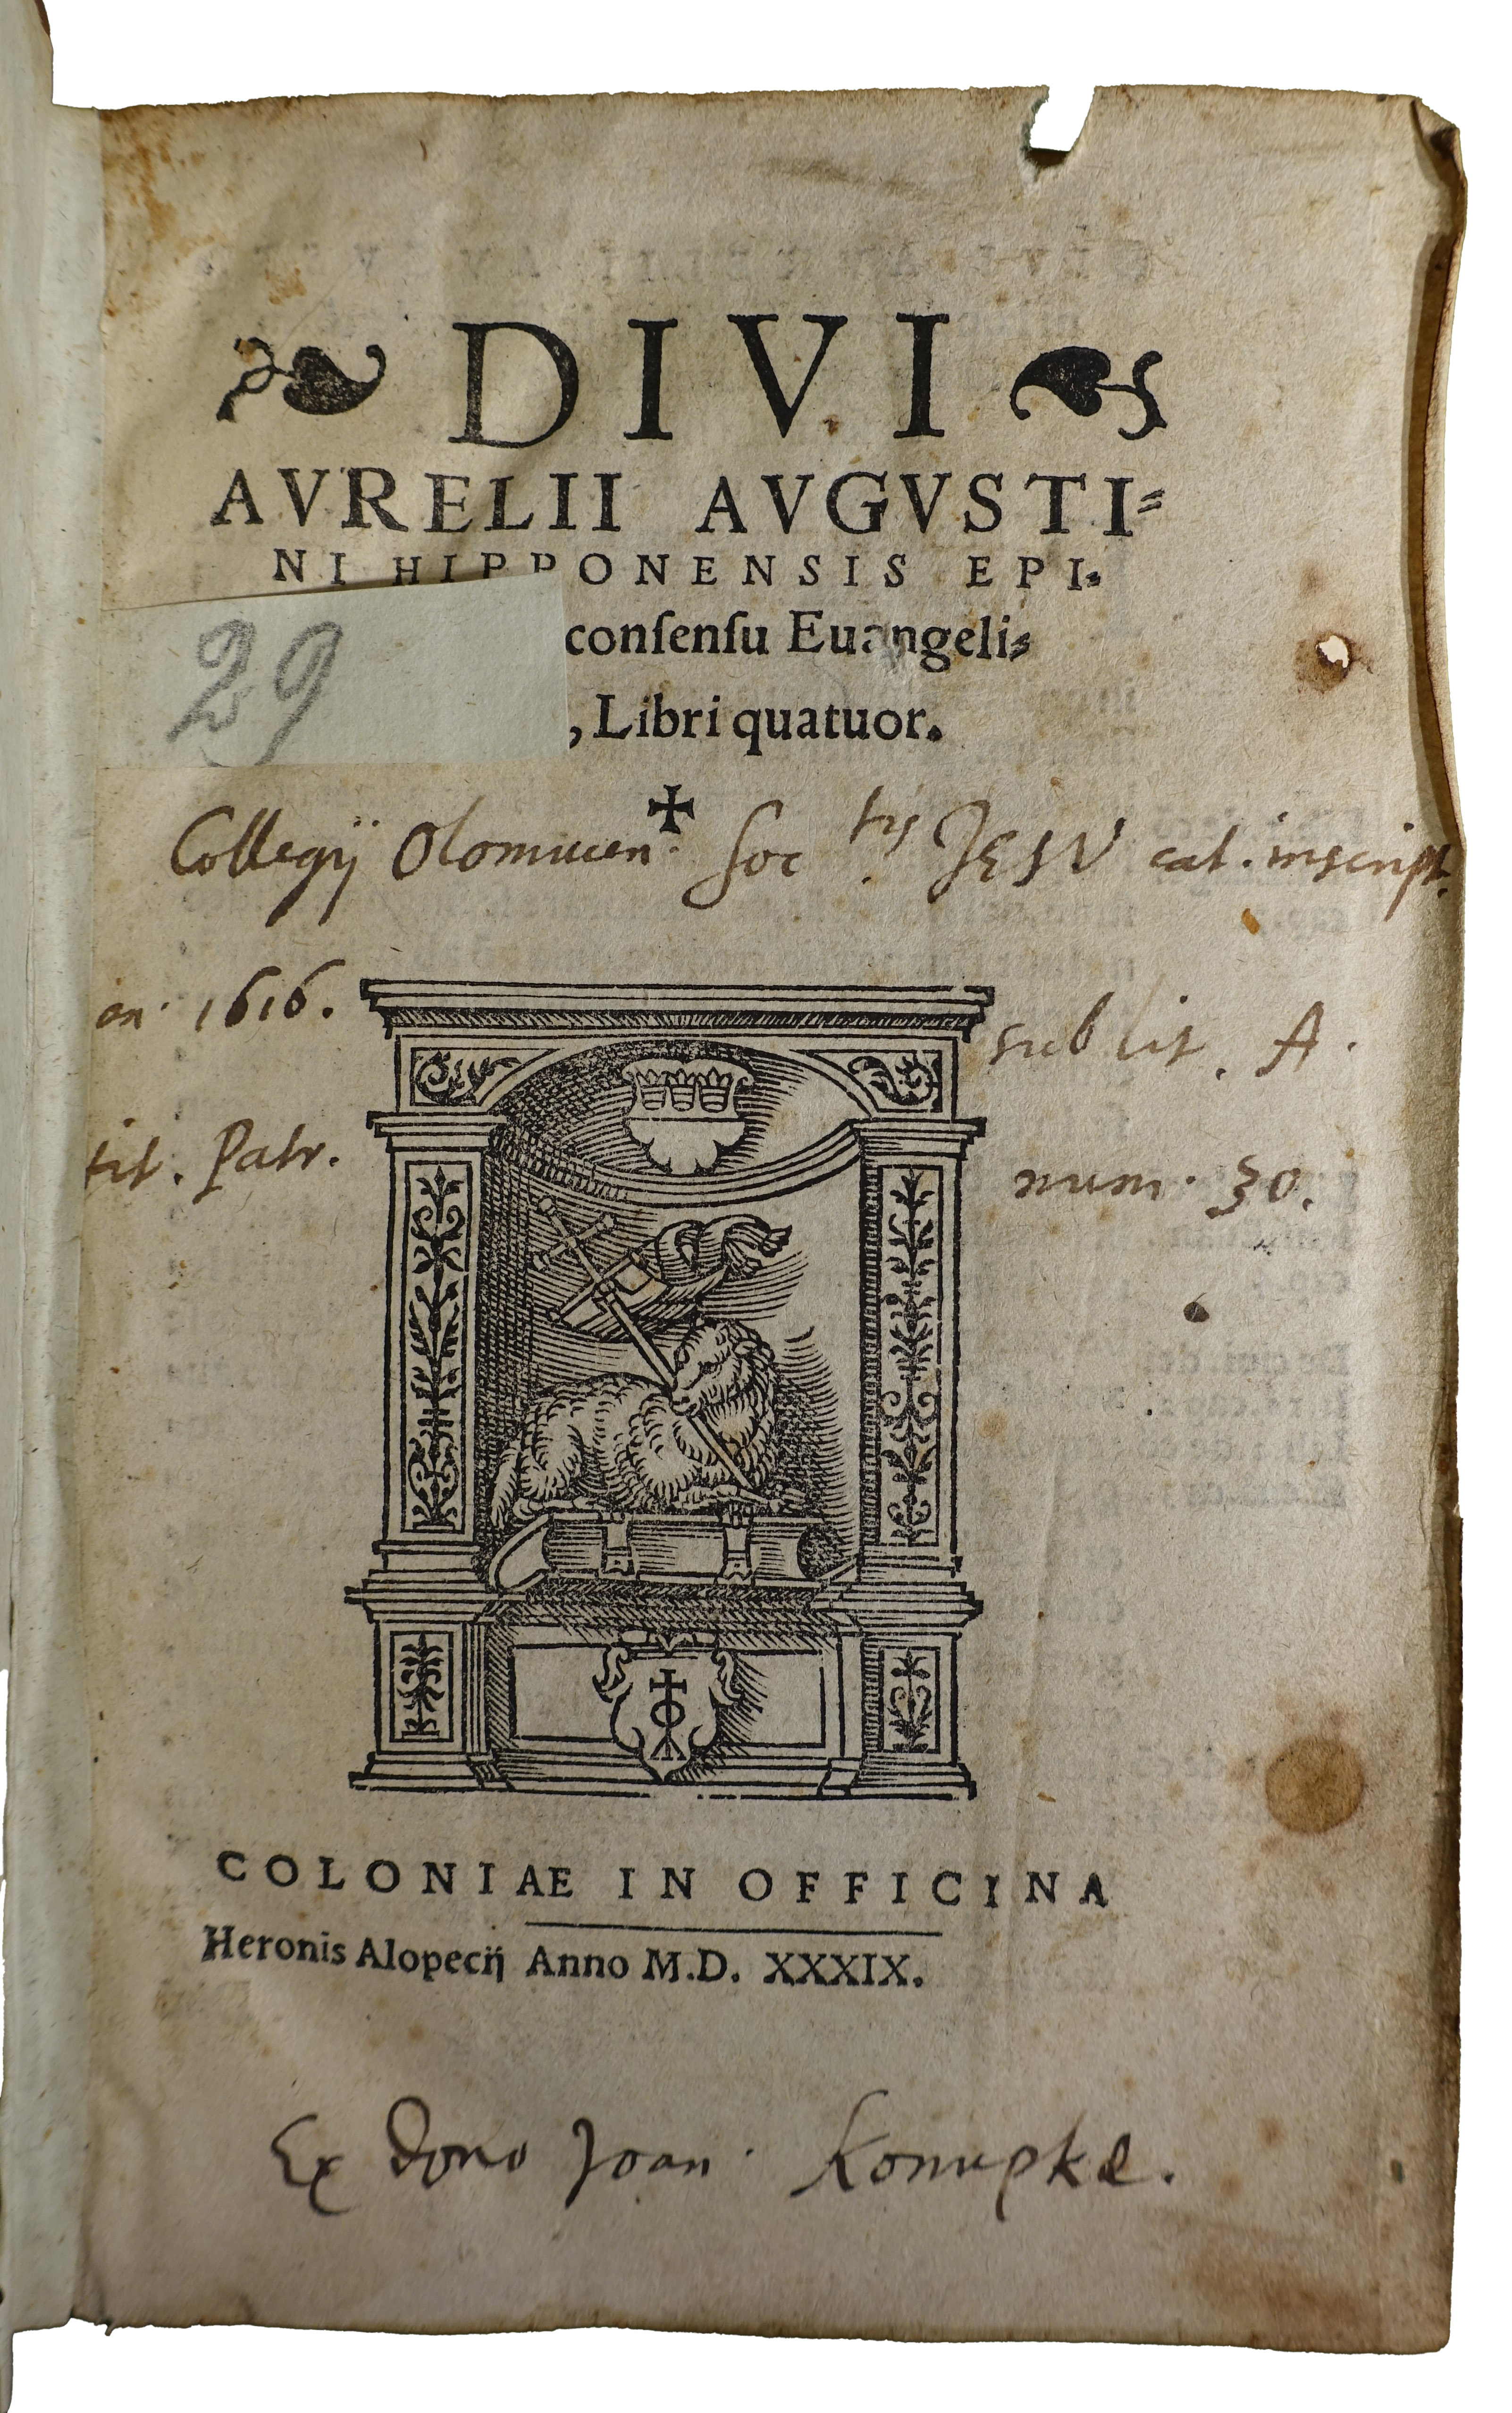 DIVI
AVRELII AVGVSTI⸗
NI HIPPONENSIS EPI.
consensu Euangeli⸗
29
, Libri quatuor.
Collegij Olomucen. Soc.tis JESV cat. inscript.
an. 1616.
sub lit. A.
tit. Patr.
num. 30.
COLONIAE IN OFFICINA
Heronis Alopecij Anno M.D. XXXIX.
Ex dono Joan.